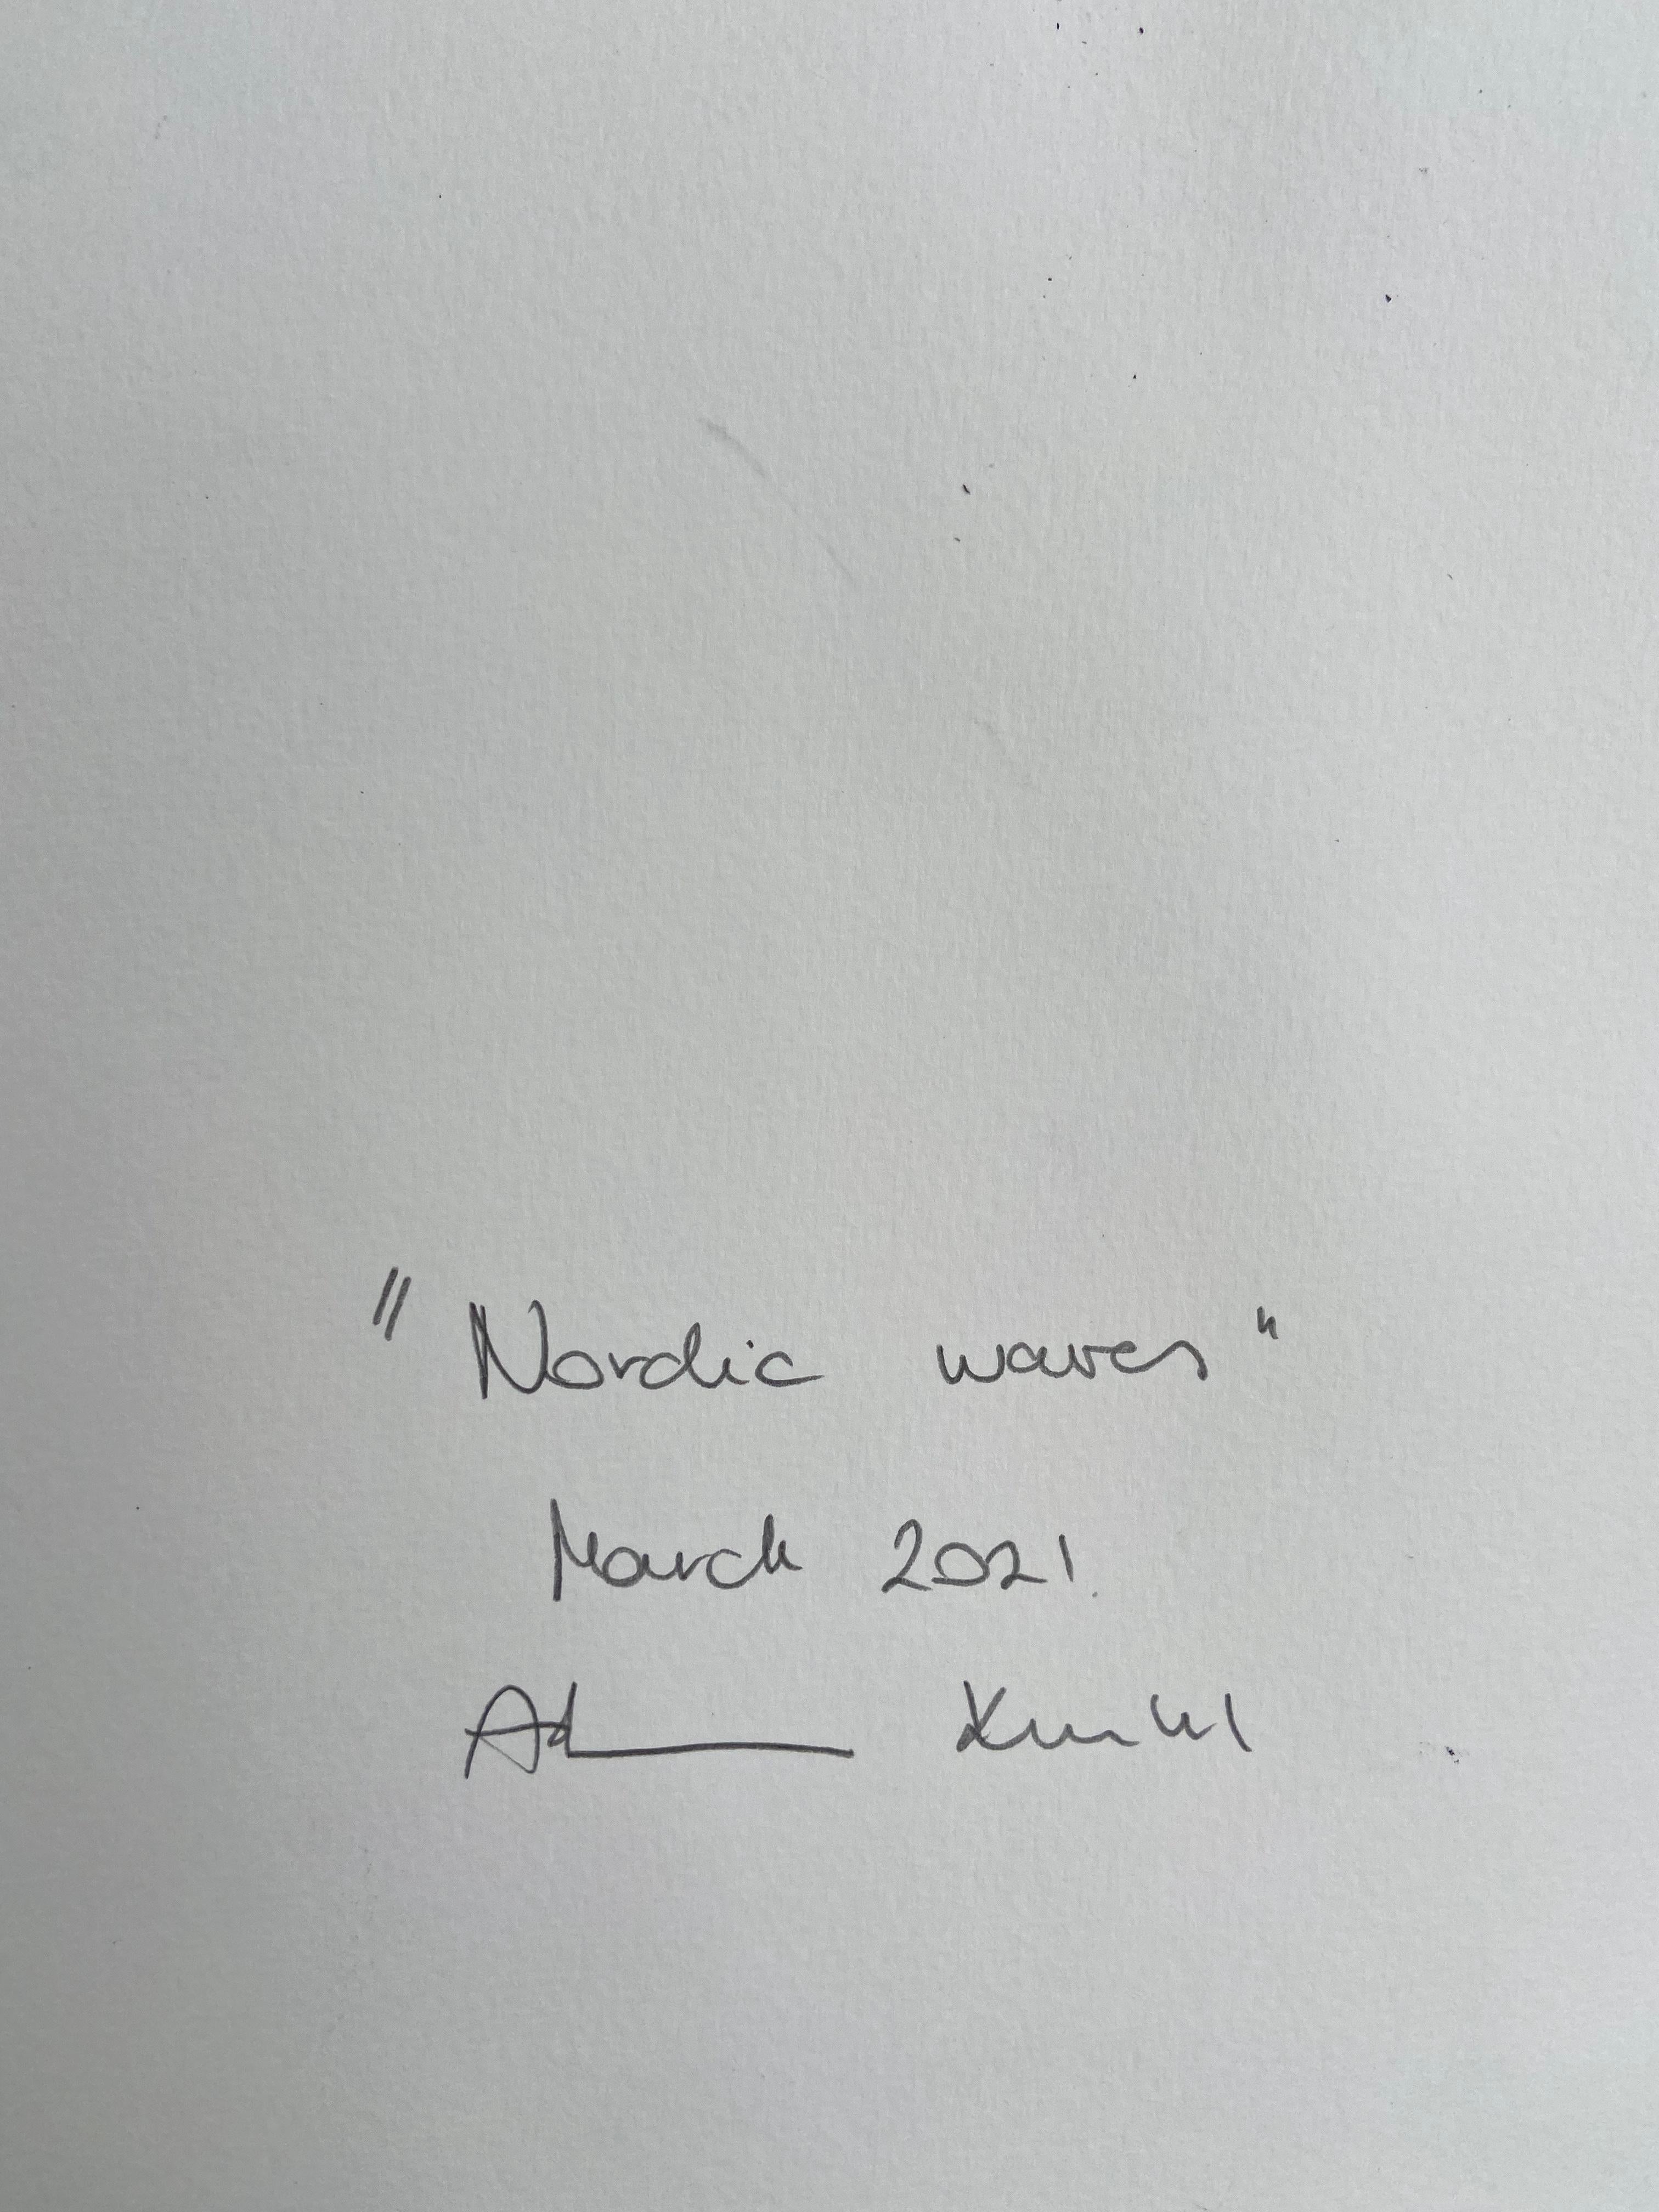 "Nordic waves"
March 2021.